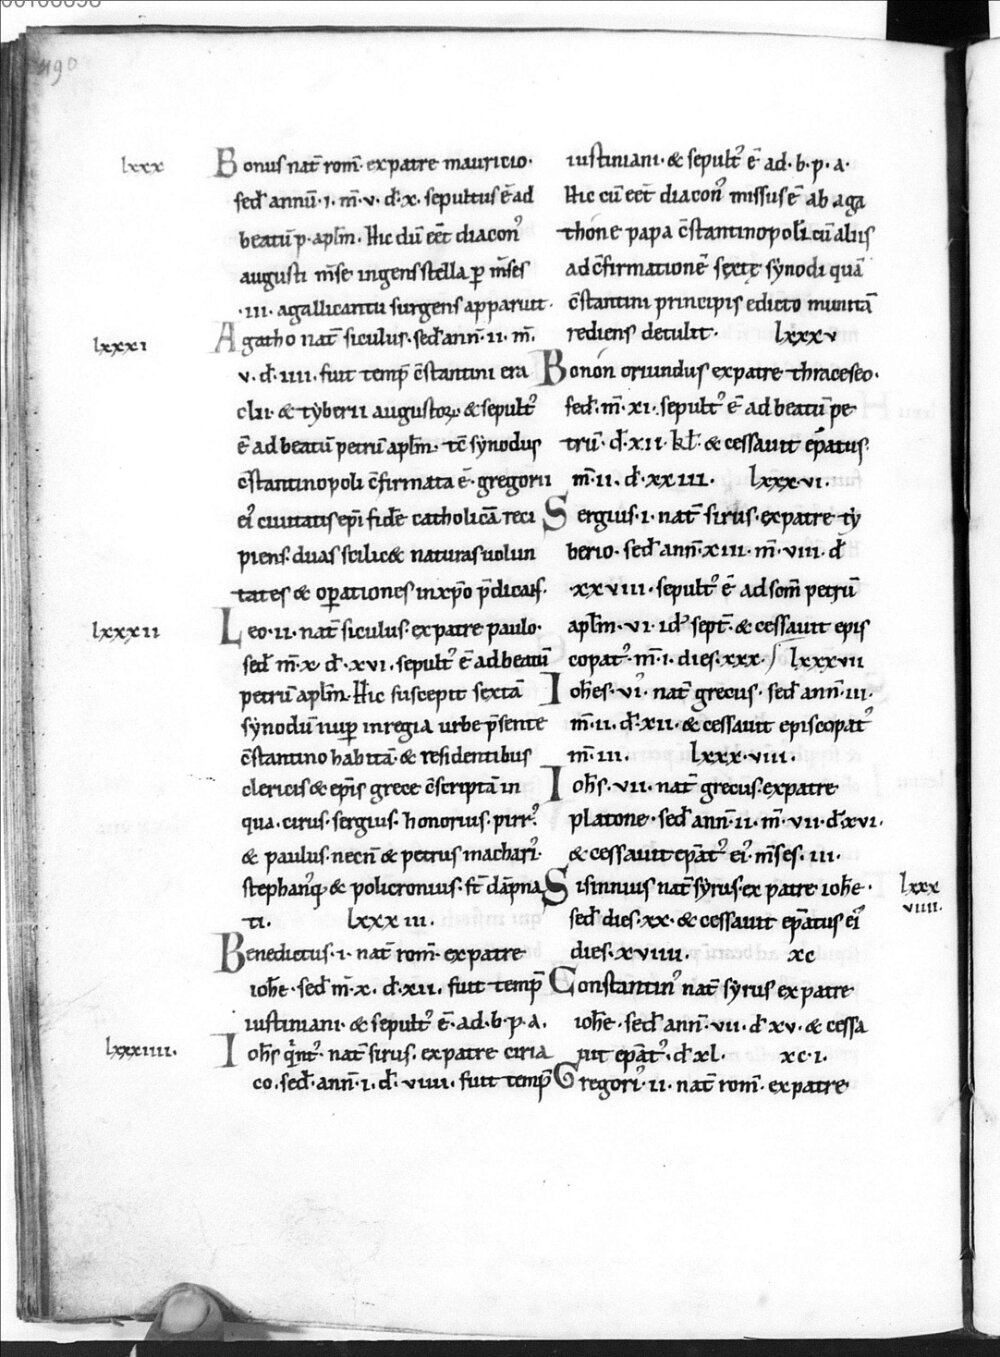 190
lxxx
Bonus nat̄ rom̄· ex patre mauricio·
sed̄ annū·i· m̄·v· d̄·x· sepultus ē ad
beatū p· apl̄m̄. Hic dū eēt diacon᷒
augusti m̄se ingens stella p̱ m̄ses
·iii· a gallicantu surgens apparuit·
lxxxi
Agatho nat̄ siculus· sed̄ ann̄·ii· m̄·
v· d̄·iiii· fuit temp̄ c̄stantini era
clii· & tyberii augustoꝝ & sepult᷒
ē ad beatū petrū apl̄m̄· tc̄ synodus
c̄stantinopoli c̄firmata ē· gregorii
ei᷒ ciuitatis ep̄i fidē catholicā reci
piens· duas scilic& naturas uolun
tates & oꝑationes in xp̄o p̄dicans·
lxxxii
Leo·ii· nat̄ siculus· ex patre paulo·
sed̄ m̄·x· d̄·xvi· sepult᷒ ē ad beatū
petrū apl̄m̄· Hic suscepit sextā
synodū nuꝑ in regia urbe p̄sente
c̄stantino habitā· & residentibus
clericis & ep̄is grece c̄scriptā in
qua· cirus· sergius· honorius· pirr᷒·
& paulus· necn̄ & petrus machari᷒·
stephanq· & policronius· st̄ dāpna
ti· lxxxiii·
Benedictus·i· nat̄ rom̄· ex patre
ioh̄e· sed̄ m̄·x· d̄·xii· fuit temp̄
iustiniani· & sepult᷒ ē· ad·b·p·a·
lxxxiiii·
Ioh̄s q̄nt᷒· nat̄ sirus· ex patre ciria
co· sed̄ ann̄·i· d̄·viiii· fuit temp̄
iustiniani· & sepult᷒ ē ad·b·p·a·
Hic cū eēt diacon᷒ missus ē ab aga
thone papa c̄stantinopolī cū aliis
ad c̄firmationē sextę synodi quā
c̄stantini principis edicto munitā
rediens detulit· lxxxv
Bonon oriundus ex patre thraceseo·
sed̄· m̄·xi· sepult᷒ ē ad beatū pe
trū· d̄·xii· kl̄· & cessauit ep̄atus·
m̄·ii· d̄·xxiii· lxxxvi·
Sergius·i· nat̄ sirus· ex patre ty
berio· sed̄ ann̄·xiii· m̄·viii· d̄
·xxviii· sepult᷒ ē ad som̄ petrū
apl̄m̄·vi·id᷒ sept̄· & cessauit epis
copat᷒· m̄·i· dies·xxx· lxxxvii
Ioh̄es·vi᷒· nat̄ grecus· sed̄ ann̄·iii·
m̄·ii· d̄·xii· & cessauit episcopat᷒
m̄·iii· lxxxviii·
Ioh̄s·vii· nat̄ grecus· ex patre
platone· sed̄ ann̄·ii· m̄·vii· d̄·xvi·
& cessauit ep̄at᷒ ei᷒ m̄ses·iii·
lxxx
viiii·
Sisinnius nat̄ syrus ex patre ioh̄e·
sed̄ dies·xx· & cessauit ep̄atus ei᷒
dies·xviiii· xc
Constantin᷒ nat̄ syrus ex patre
ioh̄e· sed̄ ann̄·vii· d̄·xv· & cessa
uit ep̄at᷒· d̄·xl· xci·
Gregori᷒·ii· nat̄ rom̄· ex patre